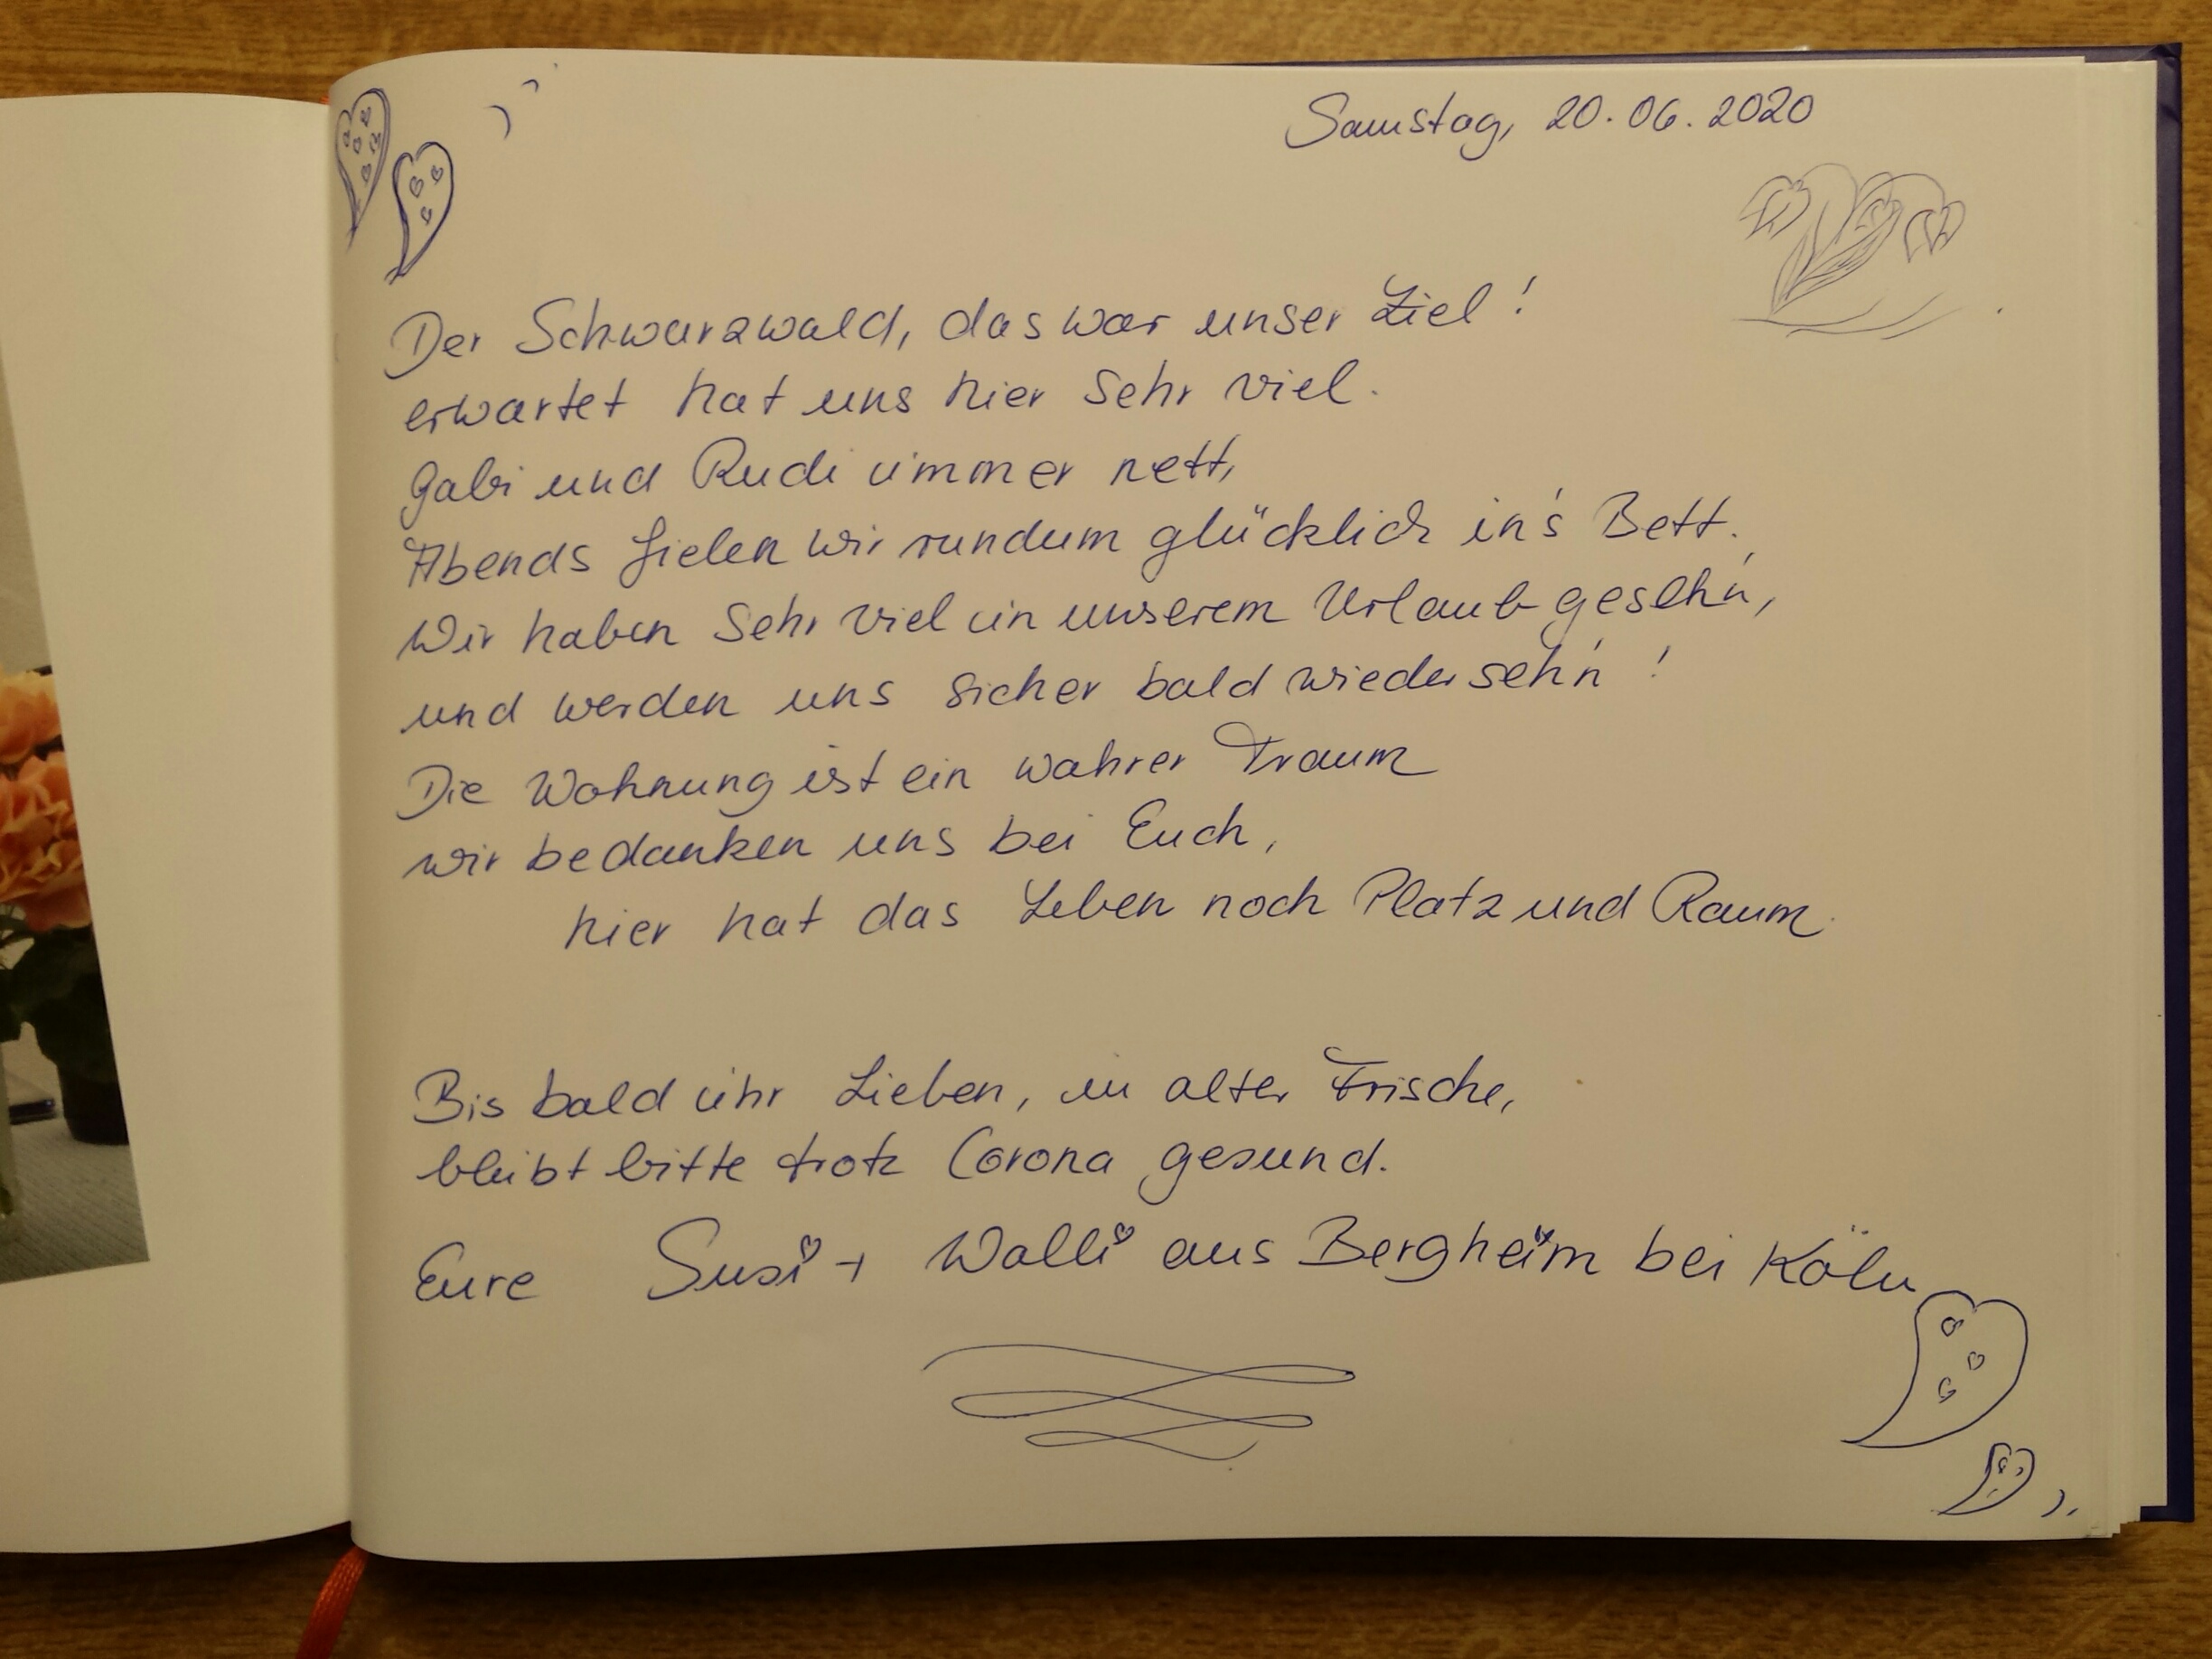 Samstag, 20.06.2020
Der Schwarzwald, das war unser Ziel!
erwartet hat uns hier sehr viel.
Gabi und Rudi immer nett,
Abends fielen wir rundum glücklich in's Bett.
Wir haben sehr viel in unserem Urlaub geseh'n,
und werden uns sicher bald wiederseh'n!
Die Wohnung ist ein wahrer Traum
wir bedanken uns bei Euch,
hier hat das Leben noch Platz und Raum.
Bis bald ihr Lieben, in alter Frische,
bleibt bitte trotz Corona gesund.
Eure Susi + Walli aus Bergheim bei Köln